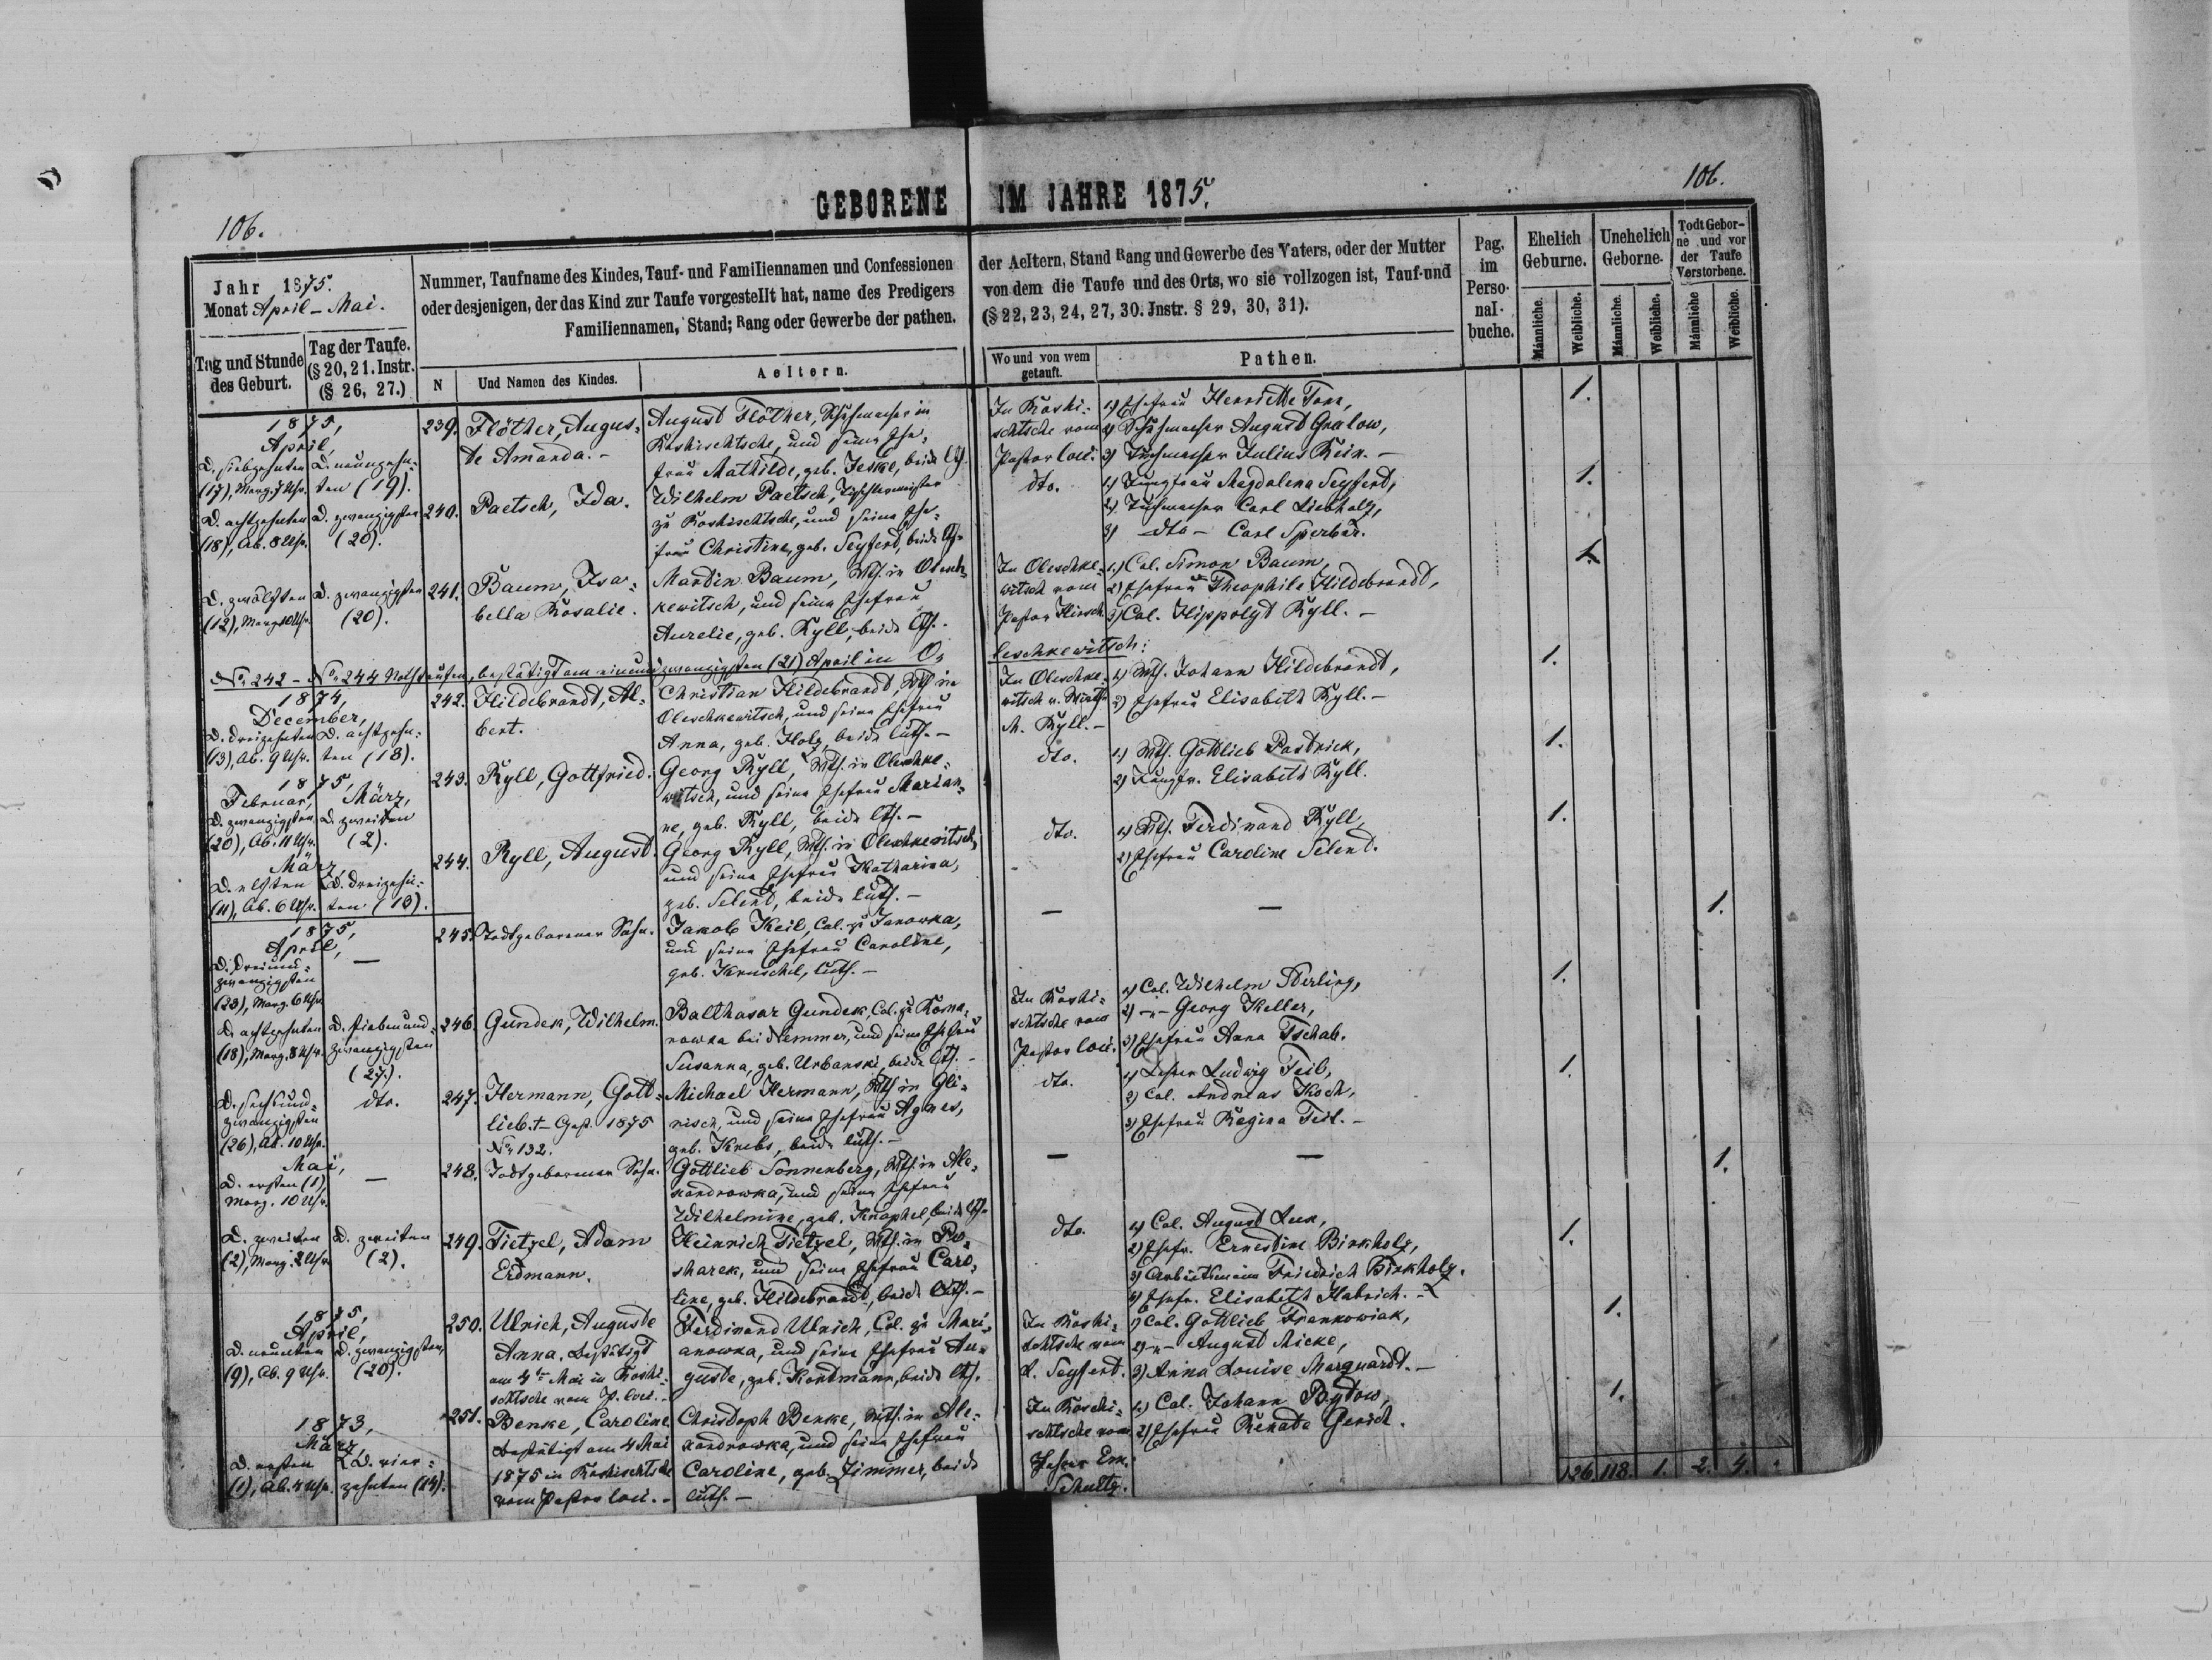 106.
GEBORENE IM JAHRE 1875.
106.
Jahr 1875.
Monat April - Mai.
Tag und Stunde
des Geburt.
Tag der Taufe.
(§ 20, 21. Instr.
(§ 26, 27.)
Nummer, Taufname des Kindes, Tauf- und Familiennamen und Confessionen
oder desjenigen, der das Kind zur Taufe vorgestellt hat, name des Predigers
Familiennamen, Stand; Rang oder Gewerbe der pathen.
N
Und Namen des Kindes.
Aeltern.
der Aeltern, Stand Rang und Gewerbe des Vaters, oder der Mutter
von dem die Taufe und des Orts, wo sie vollzogen ist, Tauf-und
(§ 22, 23, 24, 27, 30. Jnstr. § 29, 30, 31).
Wo und von wem
getauft.
Pathen.
Pag.
im
Perso-
nal-
buche.
Ehelich
Geburne.
Unehelich
Geborne.
Todt Gebor-
ne und vor
der Taufe
Verstorbene.
Männliche.
Weibliche.
Männliche.
Weibliche.
Männliche
Weibliche.
1875,
April,
D. siebzehnten
(17), Morg. 7 Uhr.
D. neunzehn-
ten (19).
239.
Flöther, Augus-
te Amanda. -
August Flöther, Schuhmacher in
Roshischtsche, und seine Ehe-
frau Mathilde, geb. Jeske, beide lth.
In Roshi-
schtsche vom
Pastor loci.
1) Ehefrau Henriette
2) Schuhmacher August Gralow,
3) Tuchmacher Julius Rein. -
1.
D. achtzehnten
(18), Ab. 8 Uhr.
D. zwanzigsten
(20).
240.
Paetsch, Ida.
Wilhelm Paetsch, Tischlermeister
zu Roshischtsche, und seine Ehe-
frau Christine, geb. Seyferd, beide lth.
dto.
1) Jungfrau Magdalena Seyferd,
2) Tuchmacher Carl Liebholz,
3) - dto - Carl Sperber.
1.
D. zwölften
(12), Morg. 10 Uhr.
D. zwanzigsten
(20).
241.
Baum, Isa-
bella Rosalie.
Martin Baum, Wth. in Olesch-
kewitsch, und seine Ehefrau
Aurelie, geb. Ryll, beide lth.
In Oleschke-
witsch vom
Pastor Hirsch
1) Col. Simon Baum,
2) Ehefrau Theophile Hildebrandt,
3) Col. Hippolyt Ryll. -
1.
No. 242 - No. 244 Nothtaufen, bestätigt am einundzwanzigsten (21) April in O-
leschkewitsch:
1874,
December,
D. dreizehnten
(13), Ab. 9 Uhr.
D. achtzehn-
ten (18).
242.
Hildebrandt, Al-
bert.
Christian Hildebrandt, Wth. in
Oleschkewitsch, und seine Ehefrau
Anna, geb. Holz, beide luth. -
In Oleschke-
witsch v. Wirth
M. Ryll. -
1) Wth. Johann Hildebrandt,
2) Ehefrau Elisabeth Ryll. -
1.
1875,
Februar,
D. zwanzigsten
(20), Ab. 11 Uhr.
März,
D. zweiten
(2).
243.
Ryll, Gottfried.
Georg Ryll, Wth. in Oleschke-
witsch, und seine Ehefrau Marian-
ne, geb. Ryll, beide lth. -
dto.
1) Wth. Gottlieb Pastrick,
2) Jungfr. Elisabeth Ryll.
1.
März,
D. elften
(11), Ab. 6 Uhr.
D. dreizehn-
ten (13).
244.
Ryll, August.
Georg Ryll, Wth. in Oleschkewitsch,
und seine Ehefrau Katharina,
geb. Selend, beide luth. -
dto.
1) Wth. Ferdinand Ryll,
2) Ehefrau Caroline Selend.
1.
1875,
April,
D. dreiund-
zwanzigsten
(23), Morg. 6 Uhr.
-
245.
Todtgeborener Sohn.
Jakob Keil, Col. zu Janowka,
und seine Ehefrau Caroline,
geb. Kruschel, luth. -
-
-
1.
D. achtzehnten
(18), Morg. 8 Uhr.
D. siebenund-
zwanzigsten
(27.).
246.
Gundek, Wilhelm.
Balthasar Gundek, Col. zu Roma-
nowka bei Klemmer, und seine Ehefrau
Susanna, geb. Urbanski, beide lth. -
In Roshi-
schtsche vom
Pastor loci.
1) Col. Wilhelm Derling,
2) -"- Georg Keller,
3) Ehefrau Anna Tschab.
1.
D. sechsund-
zwanzigsten
(26), Ab. 10 Uhr.
dto.
247.
Hermann, Gott-
lieb. † Gest. 1875
No. 132.
Michael Hermann, Wth. in Gli-
nisch, und seine Ehefrau Agnes,
geb. Krebs, beide luth. -
dto.
1) Lehrer Ludwig Teil,
2) Col. Andreas Koch,
3) Ehefrau Regina Teil. -
1.
Mai,
D. ersten (1)
Morg. 10 Uhr.
-
248.
Todtgeborener Sohn.
Gottlieb Sonnenberg, Wth. in Ale-
xandrowka, und seine Ehefrau
Wilhelmine, geb. Knaphel, beide lth.
-
-
1.
D. zweiten
(2), Morg. 2 Uhr.
D. zweiten
(2).
249.
Tietzel, Adam
Erdmann.
Heinrich Tietzel, Wth. in Po-
sharek, und seine Ehefrau Caro-
line, geb. Hildebrandt, beide luth. -
dto.
1) Col. August Lux,
2) Ehefr. Ernestine Binkholz,
3) Arbeitsmann Friedrich Binkholz.
4) Ehefr. Elisabeth Habrich. -
1.
1875,
April,
D. neunten
(9), Ab. 9 Uhr.
D. zwanzigsten
(20).
250.
Ulrich, Auguste
Anna. Bestätigt
am 4ten Mai in Roshi-
schtsche vom P. loci. -
Ferdinand Ulrich, Col. zu Mari-
anowka, und seine Ehefrau Au-
guste, geb. Kortmann, beide lth.
In Roshi-
schtsche vom
A. Seyferd.
1) Col. Gottlieb Frankowiak,
2) -"- August Micke,
3) Anna Louise Marquardt. -
1.
1873,
März,
D. ersten
(1), Ab. 4 Uhr.
D. vier-
zehnten (14).
251.
Benke, Caroline
Bestätigt am 4 Mai
1875 in Roshischtsche
vom Pastor loci. -
Christoph Benke, Wth. in Ale-
xandrowka, und seine Ehefrau
Caroline, geb. Zimmer, beide
luth. -
In Roschi-
schtsche vom
Lehrer Em.
Schultz.
1) Col. Johann Bytow,
2) Ehefrau Renate Gerich.
1.
126 118 1. 2. 4.